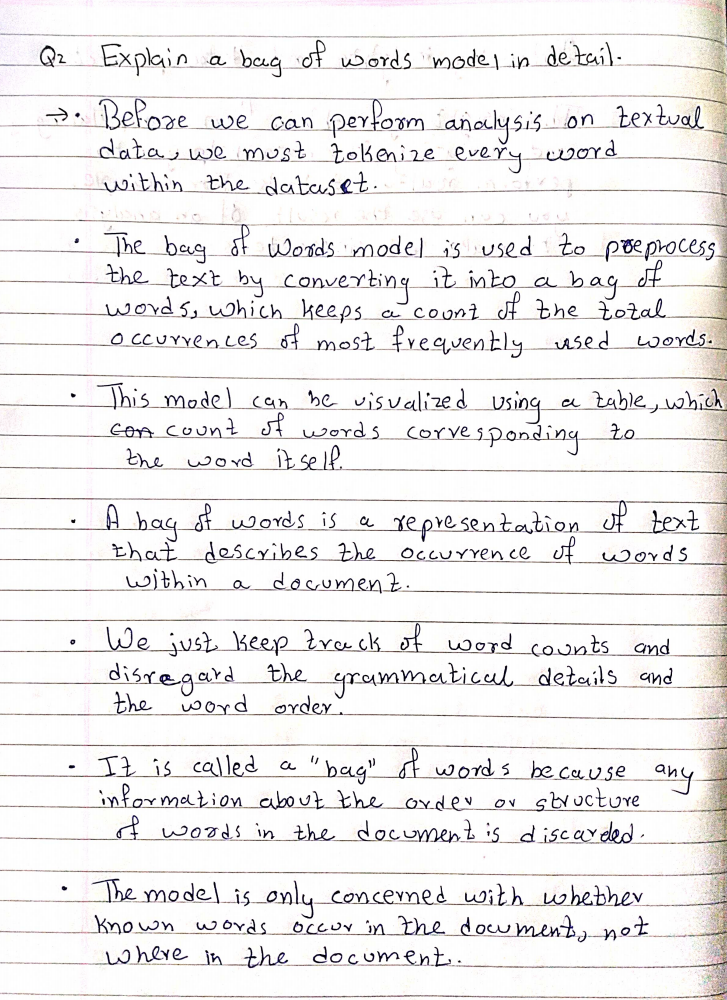 Q2 Explain a bag of words model in detail.
→ • Before we can perform analysis on textual
data, we must tokenize every word
within the dataset.
• The bag of words model is used to preprocess
the text by converting it into a bag of
words, which keeps a count of the total
occurrences of most frequently used words.
• This model can be visualized using a table, which
con count of words corresponding to
the word itself.
• A bag of words is a representation of text
that describes the occurrence of words
within a document.
• We just keep track of word counts and
disregard the grammatical details and
the word order.
- It is called a "bag" of words because any
information about the order or structure
of words in the document is discarded.
• The model is only concerned with whether
known words occur in the document, not
where in the document.